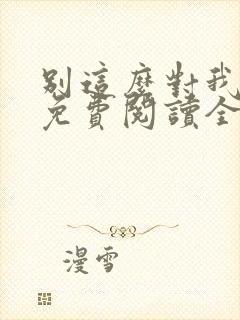 別這麼對我
免費閱讀全
漫雪